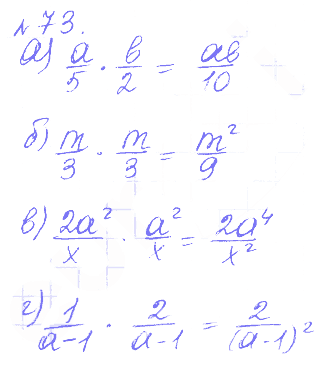 № 73.
а) a/5 · b/2 = ab/10
б) m/3 · m/3 = m²/9
в) 2a²/x · a²/x = 2a⁴/x²
г) 1/(a-1) · 2/(a-1) = 2/(a-1)²